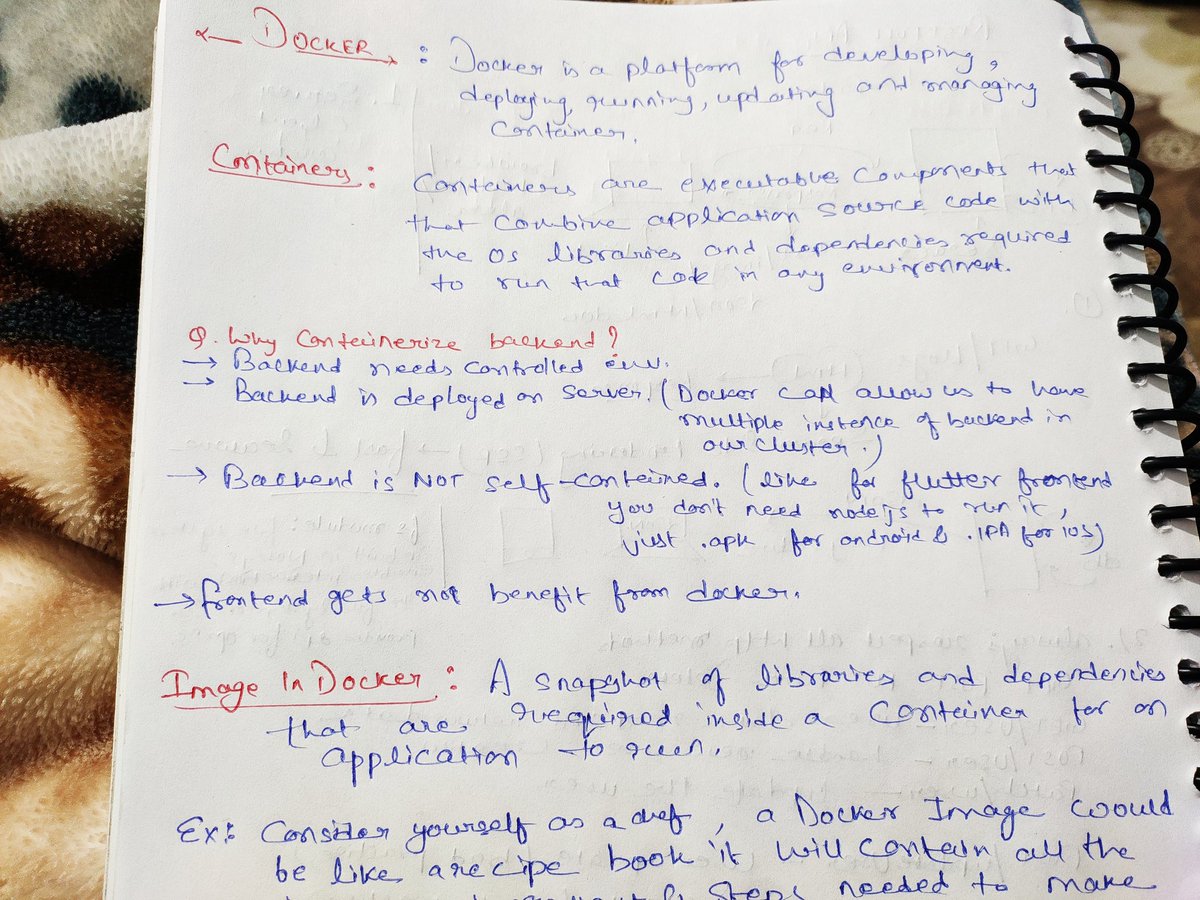 DOCKER : Docker is a platform for developing,
deploying, running, updating and managing
Container.
Containers : Containers are executable components that
that combine application source code with
the OS libraries and dependencies required
to run that code in any environment.
Q. Why Containerize backend?
→ Backend needs controlled env.
→ Backend is deployed on server. (Docker can allow us to have
multiple instence of backend in
our cluster.)
→ Backend is NOT self-contained. (like for flutter frontend
you don't need nodejs to run it,
just .apk for android & .IPA for ios)
→ frontend gets not benefit from docker.
Image In Docker : A snapshot of libraries and dependencies
that are required inside a Container for an
application to run.
Ex: Consider yourself as a chef, a Docker Image would
be like a recipe book it will contain all the
& steps needed to make